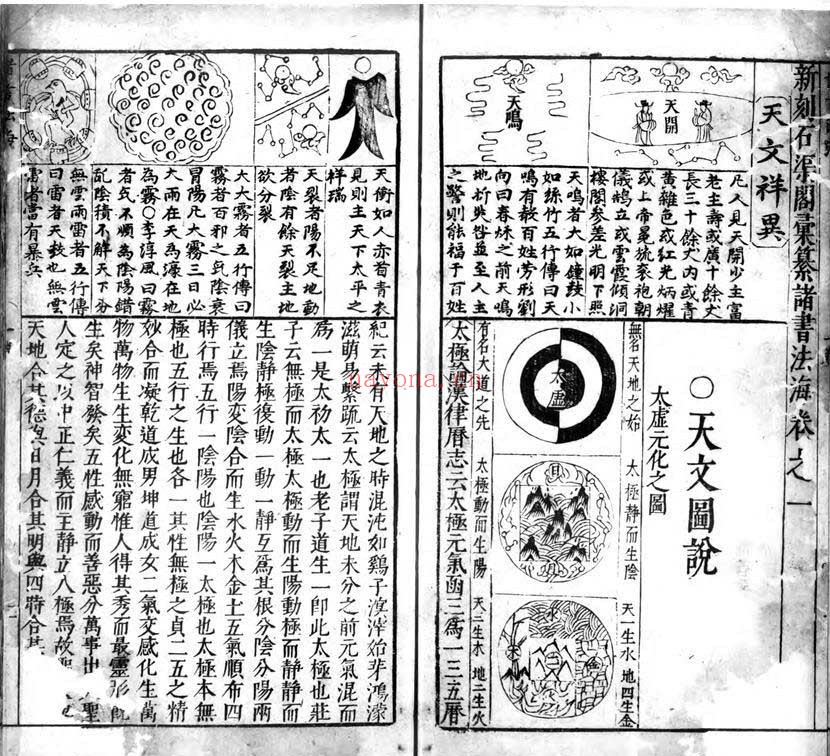 新刻石渠閣彙纂諸書法海卷之一
天文祥異
天開
凡人見天開少主富
老主壽或廣十餘丈
長三十餘丈内或青
黃雜色或紅光炳燿
或上帝冕旒袞袍朝
儀鵠立或雲霞傾洞
樓閣參差光明下照
天鳴
天鳴者大如鐘鼓小
如絲竹五行傳曰天
鳴有敎百姓勞形劉
向曰春秌之前天鳴
地坼失咎並至人主
之警則能福于百姓
天衝如人亦首青衣
見則主天下太平之
祥瑞
天裂者陽不足地動
者陰有餘天裂主地
欲分裂
大大霧者五行傳曰
霧者百邪之氣陰衰
冒陽凡大霧三日必
大雨在天為濛在地
為霧○李淳風曰霧
者氣不順為陰陽錯
亂陰積不解天下分
無雲雨雷者五行傳
曰雷者天鼓也無雲
雷者當有暴兵
○天文圖說
太虛元化之圖
無名天地之始
太極静而生陰
天一生水
地四生金
太虛
有名大道之先
太極動而生陽
天三生木
地二生火
太極論漢律曆志云太極元氣函三爲一三五曆
紀云未有天地之時混沌如鷄子溟涬始芽鴻濛
滋萌易繫疏云太極謂天地未分之前元氣混而
爲一是太初太一也老子道生一卽此太極也莊
子云無極而太極太極動而生陽動極而靜靜而
生陰靜極復動一動一靜互爲其根分陰分陽兩
儀立焉陽变陰合而生水火木金土五氣順布四
時行焉五行一陰陽也陰陽一太極也太極本無
極也五行之生也各一其性無極之貞二五之精
妙合而凝乾道成男坤道成女二氣交感化生萬
物萬物生生変化無窮惟人得其秀而最靈形旣
生矣神智發矣五性感動而善惡分萬事出 聖
人定之以中正仁義而主靜立人極焉故聖
天地合其德與日月合其明與四時合其
nayona.cn